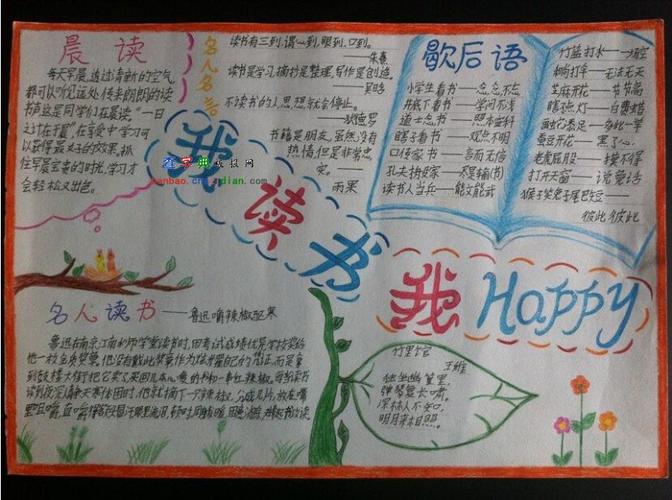 晨读
每天早晨,透过清新的空气,
都可以听见远处传来朗朗的读
书声,这是同学们在晨读。“一日
之计在于晨”,在享受中学习可
以获得最好的效果。抓
住早晨宝贵的时光,学习才
会轻松又出色。
名人名言
读书有三到,谓心到,眼到,口到。
——朱熹
读书是学习,摘抄是整理,写作是创造。
不读书的人,思想就会停止。
——狄德罗
书籍是朋友,虽然没有
热情,但是非常忠
实。——
雨果
歇后语
小学生看书——念念不忘
井底下看书——学问不浅
道士念书——照本宣科
瞎子看书——观点不明
口传家书——言而无信
孔夫子搬家——尽是输(书)
读书人当兵——能文能武
竹篮打水——一场空
和尚打伞——无法无天
芝麻开花——节节高
瞎子点灯——白费蜡
画蛇添足——多此一举
蚕豆开花——黑了心
老虎屁股——摸不得
打开天窗——说亮话
猴子笑兔子尾巴短——
彼此彼此
我读书 我Happy
名人读书——鲁迅嚼辣椒驱寒
鲁迅在南京江南水师学堂读书时,因考试成绩优异,学校奖给
他一枚金质奖章。他没有戴此奖章作为炫耀自己的凭证,而是拿
到鼓楼大街把它卖了,买回几本心爱的书和一串红辣椒。每当读书
读到夜深人静、天寒体困时,他就摘下一只辣椒,分成几片,放在嘴
竹里馆
王维
独坐幽篁里,
弹琴复长啸。
深林人不知,
明月来相照。